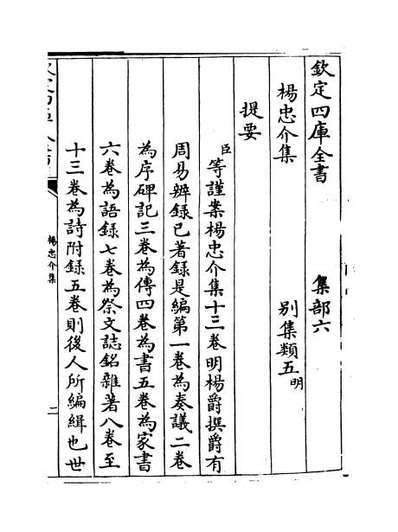 欽定四庫全書
集部六
楊忠介集
別集類五明
提要
臣等謹案楊忠介集十三卷明楊爵撰爵有
周易辨録已著録是編第一卷為奏議二卷
為序碑記三卷為傳四卷為書五卷為家書
六卷為語録七卷為祭文誌銘雜著八卷至
十三卷為詩附録五卷則後人所編緝也世
楊忠介集